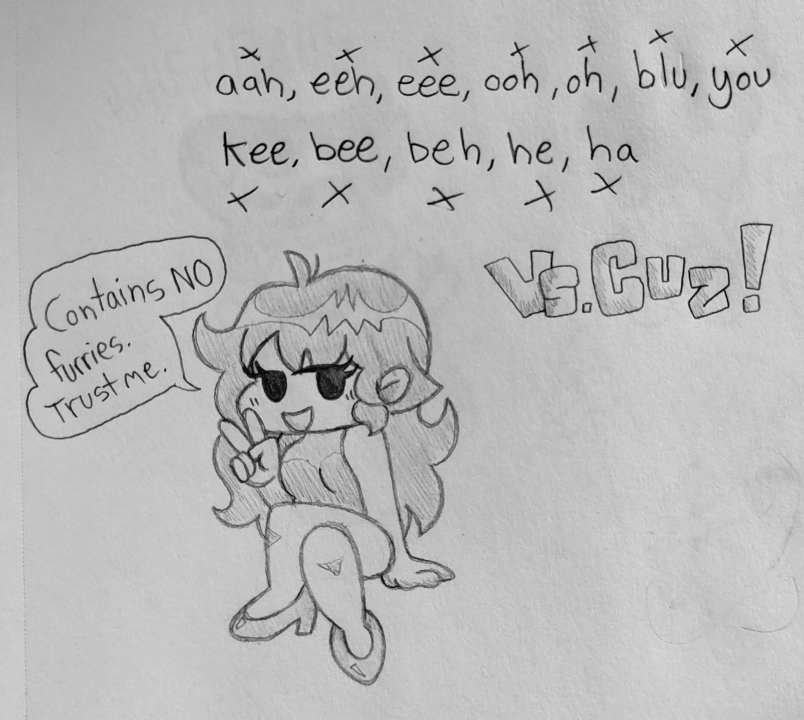 aah, eeh, eee, ooh, oh, blu, you
kee, bee, beh, he, ha
Vs. Cuz!
Contains NO
furries.
Trust me.